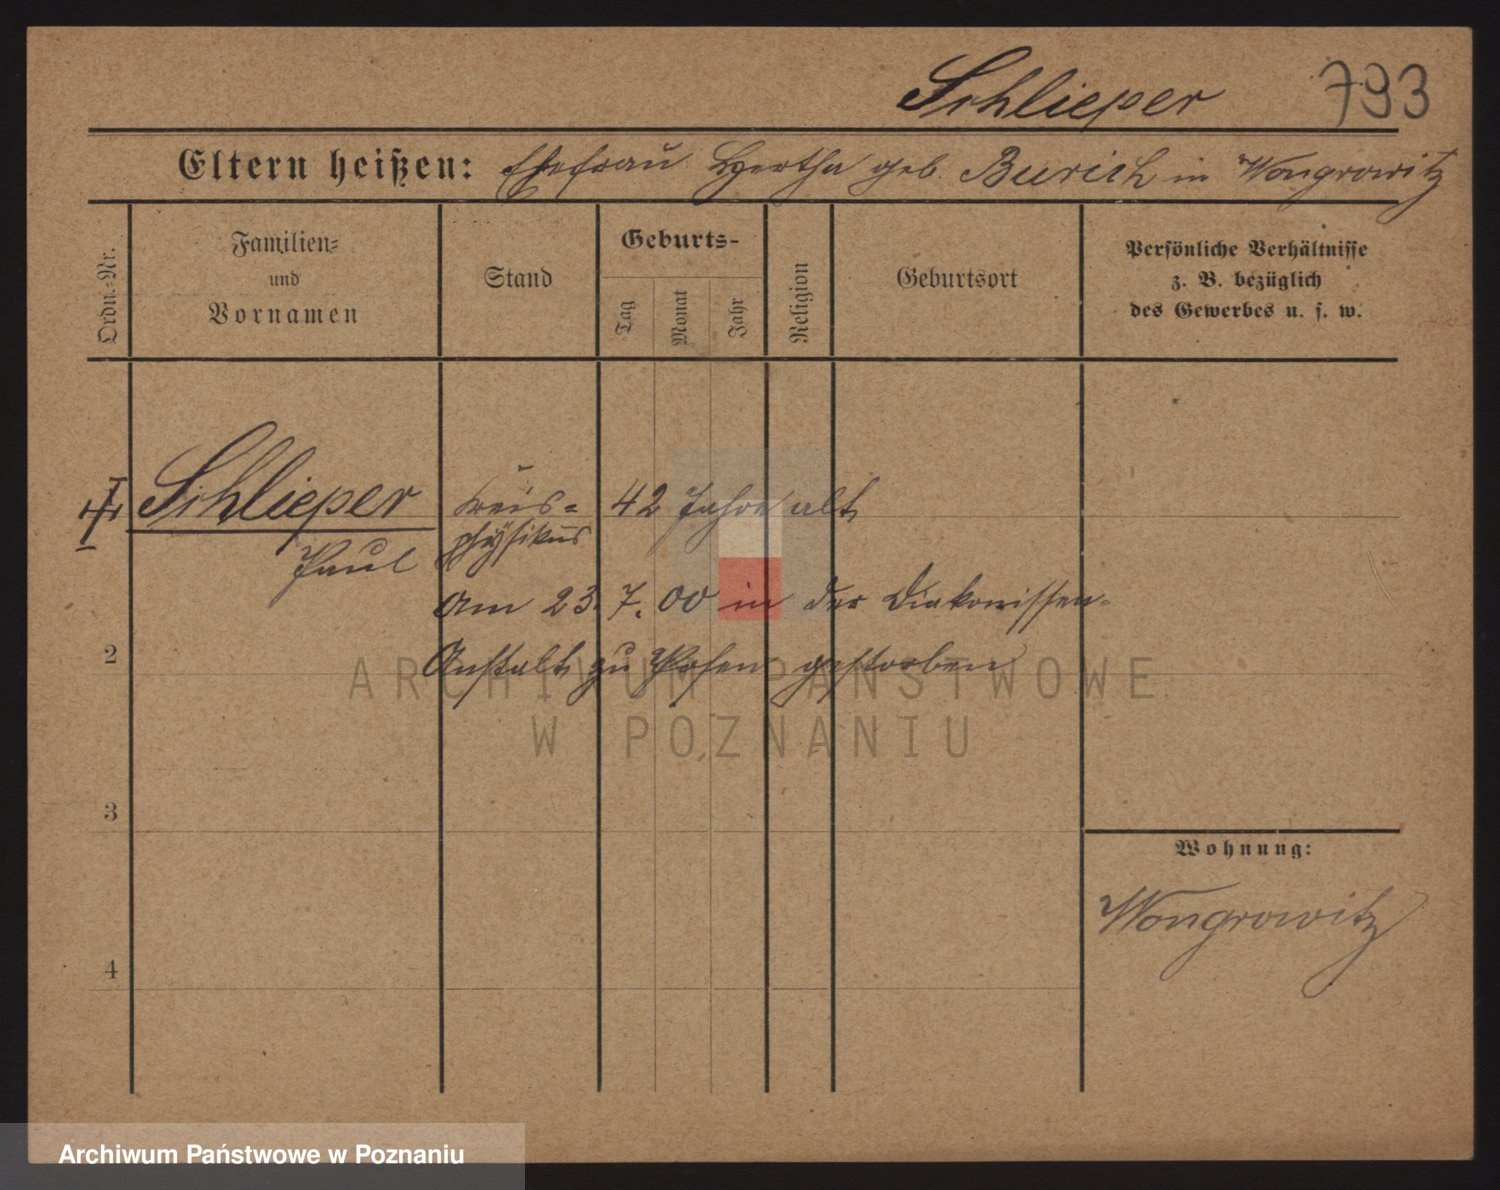 Schlieper 793
Eltern heißen: Ehefrau Hertha geb. Burich in Wongrowitz
Ordn.-Nr.
Familien-
und
Vornamen
Stand
Geburts-
Tag
Monat
Jahr
Religion
Geburtsort
Persönliche Verhältnisse
z. B. bezüglich
des Gewerbes u. s. w.
Schlieper Kreis- 42 Jahre alt
Paul physikus
Am 23. 7. 00 in der Diakonissen-
2 Anstalt zu Posen gestorben
ARCHIWUM PAŃSTWOWE
W POZNANIU
3
Wohnung:
Wongrowitz
4
Archiwum Państwowe w Poznaniu